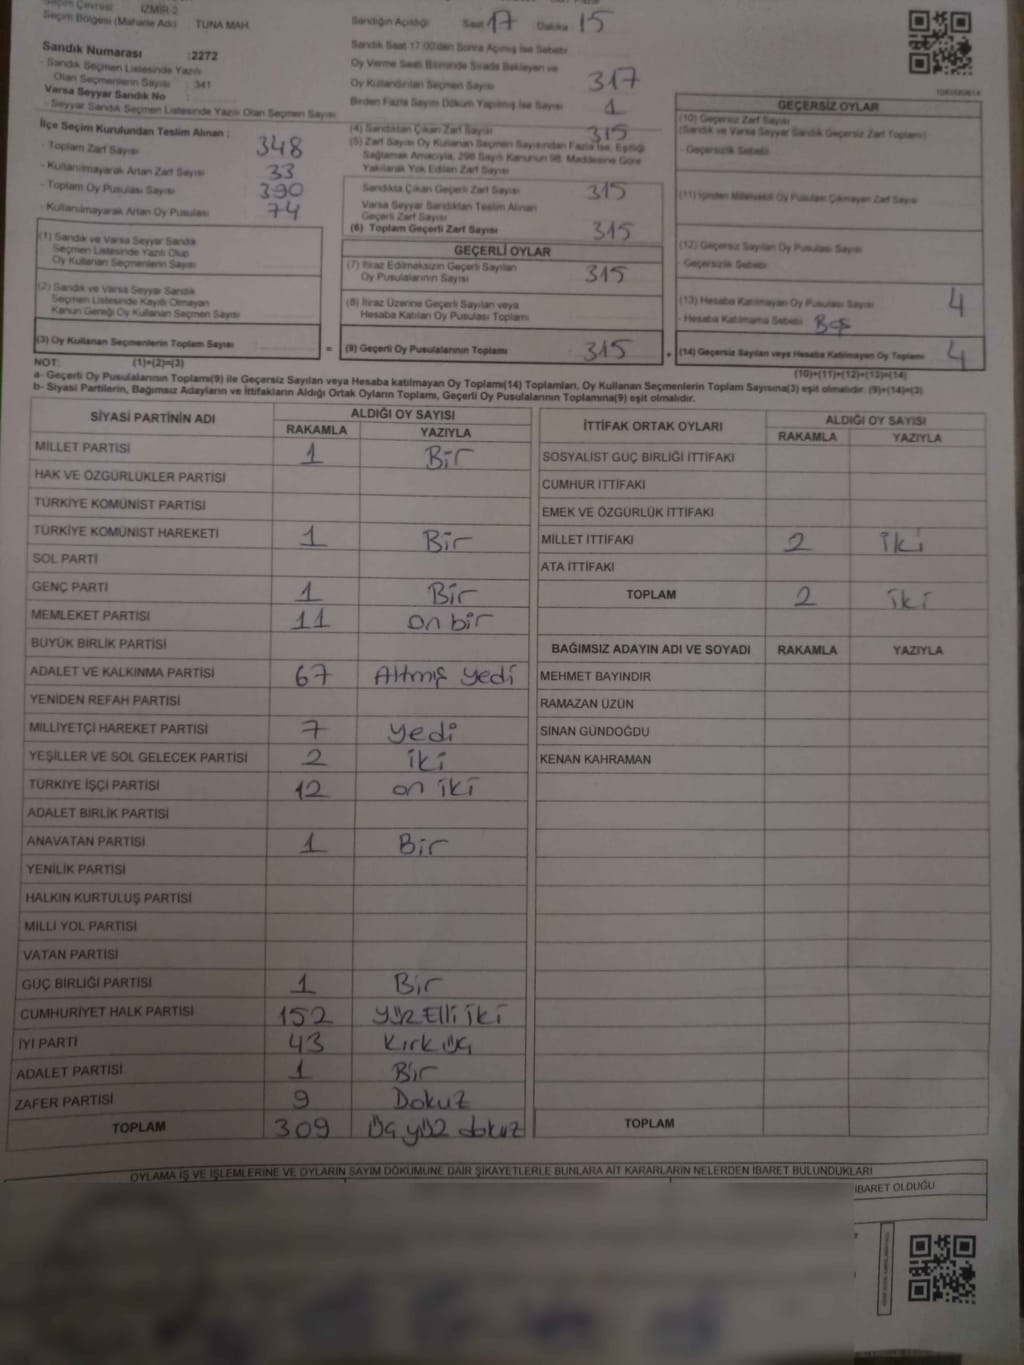 Seçim Çevresi İZMİR-2
Seçim Bölgesi (Mahalle Adı) TUNA MAH.
Sandık Numarası :2272
- Sandık Seçmen Listesinde Yazılı
Olan Seçmenlerin Sayısı : 341
Varsa Seyyar Sandık No
- Seyyar Sandık Seçmen Listesinde Yazılı Olan Seçmen Sayısı
İlçe Seçim Kurulundan Teslim Alınan ;
- Toplam Zarf Sayısı 348
- Kullanılmayarak Artan Zarf Sayısı 33
- Toplam Oy Pusulası Sayısı 390
- Kullanılmayarak Artan Oy Pusulası 74
(1) Sandık ve Varsa Seyyar Sandık
Seçmen Listesinde Yazılı Olup
Oy Kullanan Seçmenlerin Sayısı
(2) Sandık ve Varsa Seyyar Sandık
Seçmen Listesinde Kayıtlı Olmayan
Kanun Gereği Oy Kullanan Seçmen Sayısı
(3) Oy Kullanan Seçmenlerin Toplam Sayısı
(1)+(2)=(3)
Sandığın Açıldığı Saat 17 Dakika 15
Sandık Saat 17.00'den Sonra Açılmış İse Sebebi
Oy Verme Saati Bitiminde Sırada Bekleyen ve
Oy Kullandırılan Seçmen Sayısı 317
Birden Fazla Sayım Döküm Yapılmış İse Sayısı 1
(4) Sandıktan Çıkan Zarf Sayısı 315
(5) Zarf Sayısı Oy Kullanan Seçmen Sayısından Fazla İse, Eşitliği
Sağlamak Amacıyla, 298 Sayılı Kanunun 98. Maddesine Göre
Yakılarak Yok Edilen Zarf Sayısı
Sandıkta Çıkan Geçerli Zarf Sayısı 315
Varsa Seyyar Sandıktan Teslim Alınan
Geçerli Zarf Sayısı
(6) Toplam Geçerli Zarf Sayısı 315
GEÇERLİ OYLAR
(7) İtiraz Edilmeksizin Geçerli Sayılan
Oy Pusulalarının Sayısı 315
(8) İtiraz Üzerine Geçerli Sayılan veya
Hesaba Katılan Oy Pusulası Toplamı
= (9) Geçerli Oy Pusulalarının Toplamı 315
GEÇERSİZ OYLAR
(10) Geçersiz Zarf Sayısı
(Sandık ve Varsa Seyyar Sandık Geçersiz Zarf Toplamı)
- Geçersizlik Sebebi
(11) İçinden Milletvekili Oy Pusulası Çıkmayan Zarf Sayısı
(12) Geçersiz Sayılan Oy Pusulası Sayısı
- Geçersizlik Sebebi
(13) Hesaba Katılmayan Oy Pusulası Sayısı 4
- Hesaba Katılmama Sebebi Boş
+ (14) Geçersiz Sayılan veya Hesaba Katılmayan Oy Toplamı 4
(10)+(11)+(12)+(13)=(14)
NOT:
a- Geçerli Oy Pusulalarının Toplamı(9) ile Geçersiz Sayılan veya Hesaba katılmayan Oy Toplamı(14) Toplamları, Oy Kullanan Seçmenlerin Toplam Sayısına(3) eşit olmalıdır. (9)+(14)=(3)
b- Siyasi Partilerin, Bağımsız Adayların ve İttifakların Aldığı Ortak Oyların Toplamı, Geçerli Oy Pusulalarının Toplamına(9) eşit olmalıdır.
SİYASİ PARTİNİN ADI ALDIĞI OY SAYISI
RAKAMLA YAZIYLA
MİLLET PARTİSİ 1 Bir
HAK VE ÖZGÜRLÜKLER PARTİSİ
TÜRKİYE KOMÜNİST PARTİSİ
TÜRKİYE KOMÜNİST HAREKETİ 1 Bir
SOL PARTİ
GENÇ PARTİ 1 Bir
MEMLEKET PARTİSİ 11 on bir
BÜYÜK BİRLİK PARTİSİ
ADALET VE KALKINMA PARTİSİ 67 Altmış yedi
YENİDEN REFAH PARTİSİ
MİLLİYETÇİ HAREKET PARTİSİ 7 yedi
YEŞİLLER VE SOL GELECEK PARTİSİ 2 iki
TÜRKİYE İŞÇİ PARTİSİ 12 on iki
ADALET BİRLİK PARTİSİ
ANAVATAN PARTİSİ 1 Bir
YENİLİK PARTİSİ
HALKIN KURTULUŞ PARTİSİ
MİLLİ YOL PARTİSİ
VATAN PARTİSİ
GÜÇ BİRLİĞİ PARTİSİ 1 Bir
CUMHURİYET HALK PARTİSİ 152 yüz Elli iki
İYİ PARTİ 43 Kırk üç
ADALET PARTİSİ 1 Bir
ZAFER PARTİSİ 9 Dokuz
TOPLAM 309 Üç yüz dokuz
İTTİFAK ORTAK OYLARI ALDIĞI OY SAYISI
RAKAMLA YAZIYLA
SOSYALİST GÜÇ BİRLİĞİ İTTİFAKI
CUMHUR İTTİFAKI
EMEK VE ÖZGÜRLÜK İTTİFAKI
MİLLET İTTİFAKI 2 iki
ATA İTTİFAKI
TOPLAM 2 iki
BAĞIMSIZ ADAYIN ADI VE SOYADI RAKAMLA YAZIYLA
MEHMET BAYINDIR
RAMAZAN UZUN
SİNAN GÜNDOĞDU
KENAN KAHRAMAN
TOPLAM
OYLAMA İŞ VE İŞLEMLERİNE VE OYLARIN SAYIM DÖKÜMÜNE DAİR ŞİKAYETLERLE BUNLARA AİT KARARLARIN NELERDEN İBARET BULUNDUKLARI
İBARET OLDUĞU